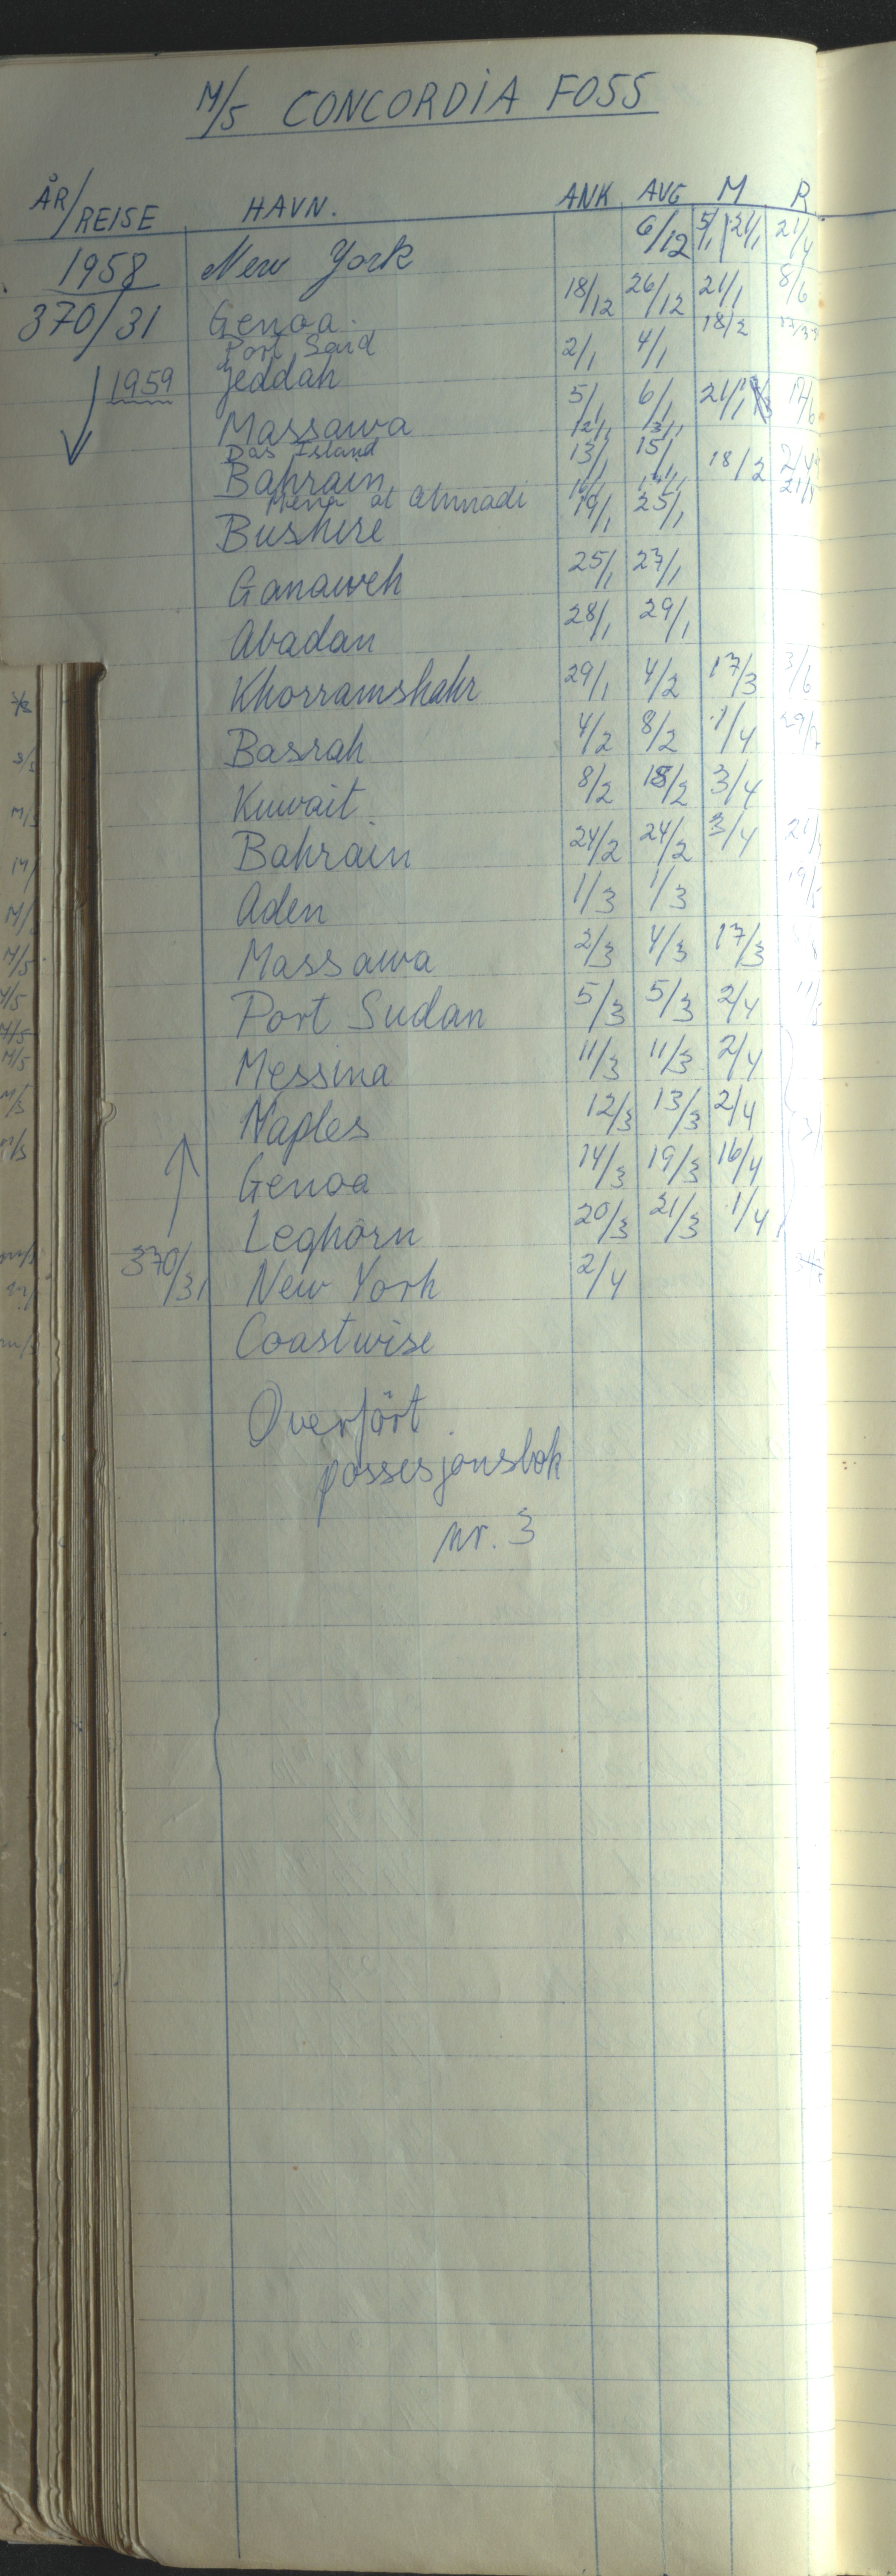 M/S CONCORDIA FOSS
ÅR/REISE HAVN. ANK AVG M R
1958 New York 6/12 5/1 21/1 21/4
370/31 Genoa. 18/12 26/12 21/1 8/6
Port Said 18/2
1959 Jeddah 2/1 4/1
Massawa 5/1 6/1 21/1 17/6
Das Island 12/1 13/1
Bahrain 13/1 15/1 18/2
Mena al Ahmadi
Bushire 19/1 25/1
Ganaweh 25/1 27/1
Abadan 28/1 29/1
Khorramshahr 29/1 4/2 17/3 3/6
Basrah 4/2 8/2 1/4
Kuwait 8/2 18/2 3/4
Bahrain 24/2 24/2 3/4
Aden 1/3 1/3
Massawa 2/3 4/3 17/3
Port Sudan 5/3 5/3 2/4
Messina 11/3 11/3 2/4
Naples 12/3 13/3 2/4
Genoa 14/3 19/3 16/4
Leghorn 20/3 21/3 1/4
370/31 New York 2/4
Coastwise
Overfört
possesjonsbok
nr. 3